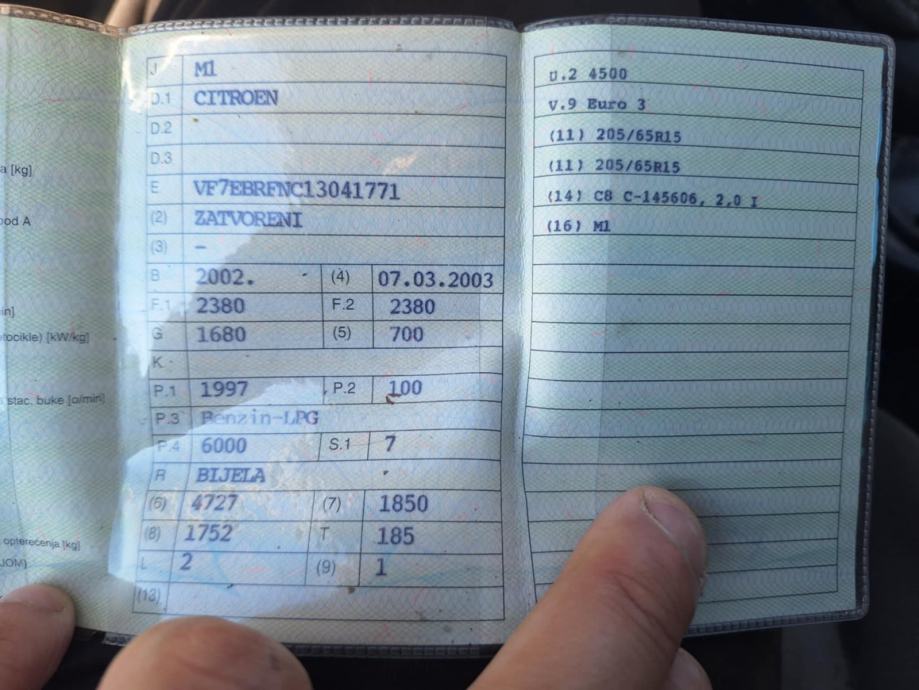 a [kg]
pod A
in]
rocikle) [kW/kg]
stac. buke [o/min]
opterećenja [kg]
JOM)
J M1
D.1 CITROEN
D.2
D.3
E VF7EBRFNC13041771
(2) ZATVORENI
(3) –
B 2002. (4) 07.03.2003
F.1 2380 F.2 2380
G 1680 (5) 700
K
P.1 1997 P.2 100
P.3 Benzin-LPG
P.4 6000 S.1 7
R BIJELA
(6) 4727 (7) 1850
(8) 1752 T 185
L 2 (9) 1
(13)
U.2 4500
V.9 Euro 3
(11) 205/65R15
(11) 205/65R15
(14) C8 C-145606, 2,0 I
(16) M1